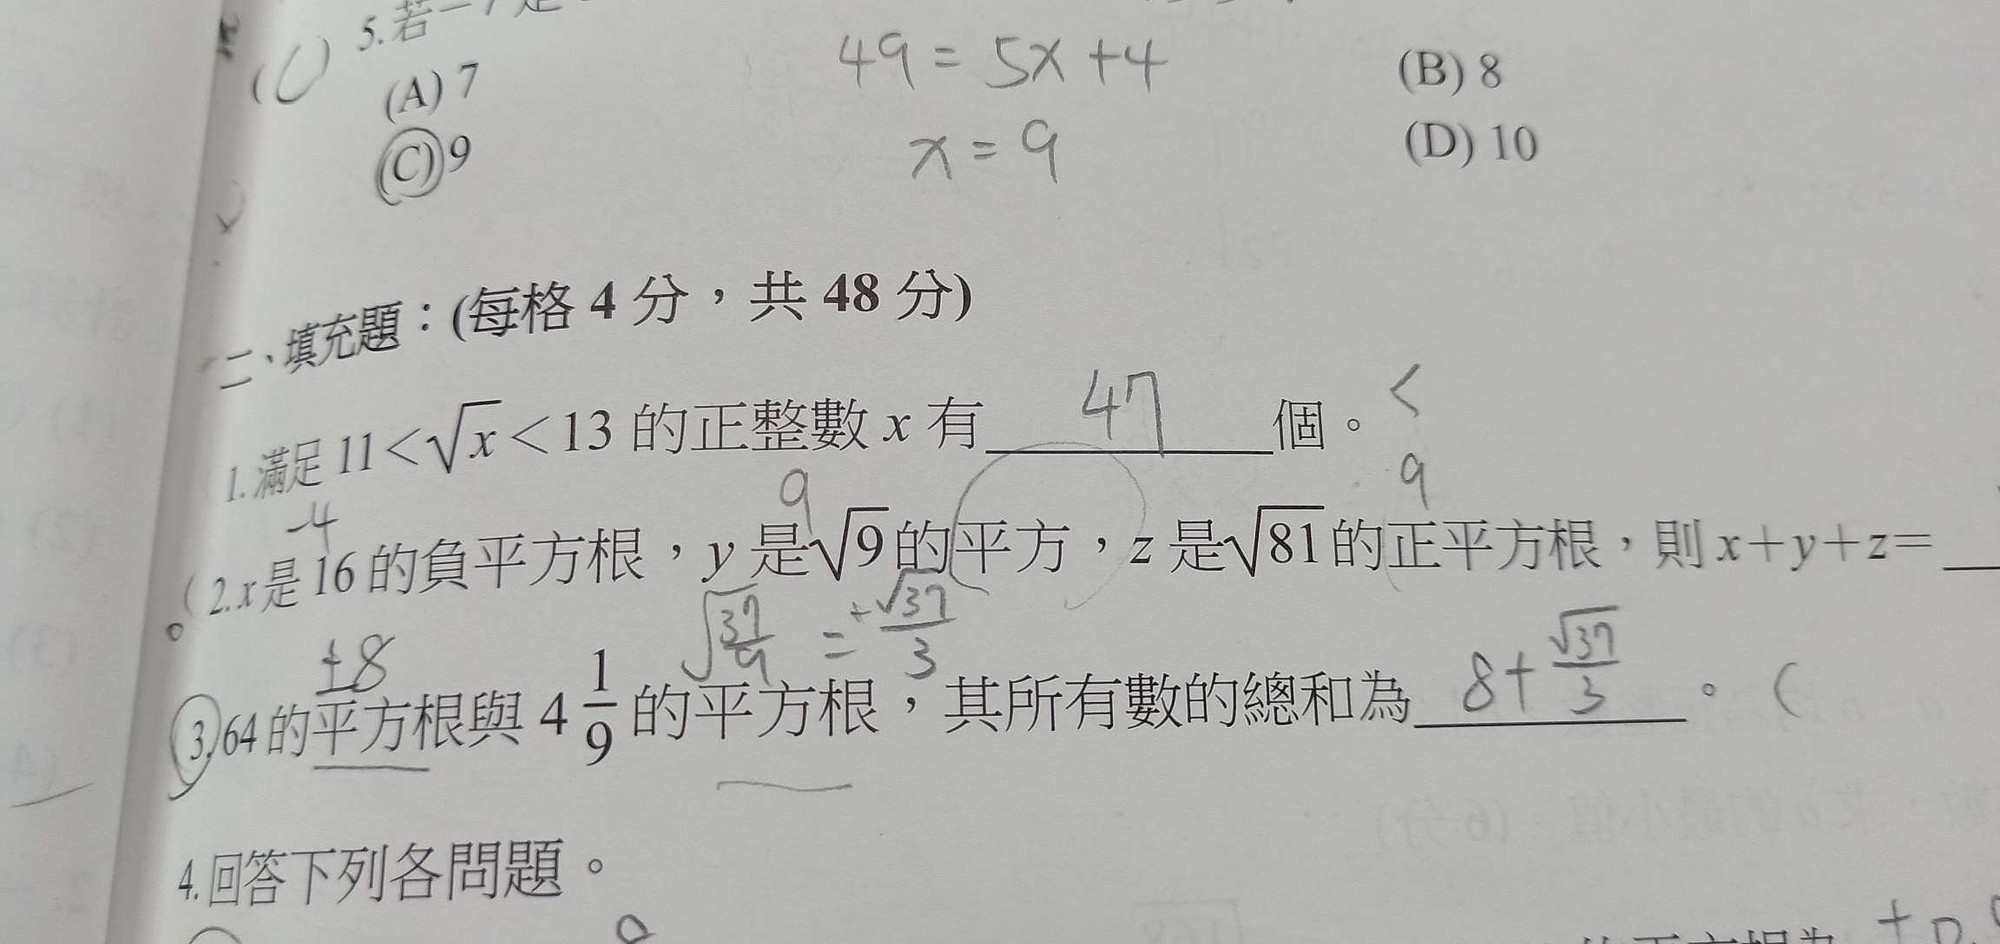 ( ) 5.若一
49 = 5x + 4
(A) 7
(B) 8
x = 9
(C) 9
(D) 10
二、填充題：(每格 4 分，共 48 分)
1.滿足 11＜√x＜13 的正整數 x 有 47 個。
-4 9 9
2.x是 16 的負平方根，y 是√9的平方，z 是√81的正平方根，則 x＋y＋z＝
±8 √(37/9) = ±√37/3
3.64的平方根與 4 1/9 的平方根，其所有數的總和為 8+√37/3 。
4.回答下列各問題。